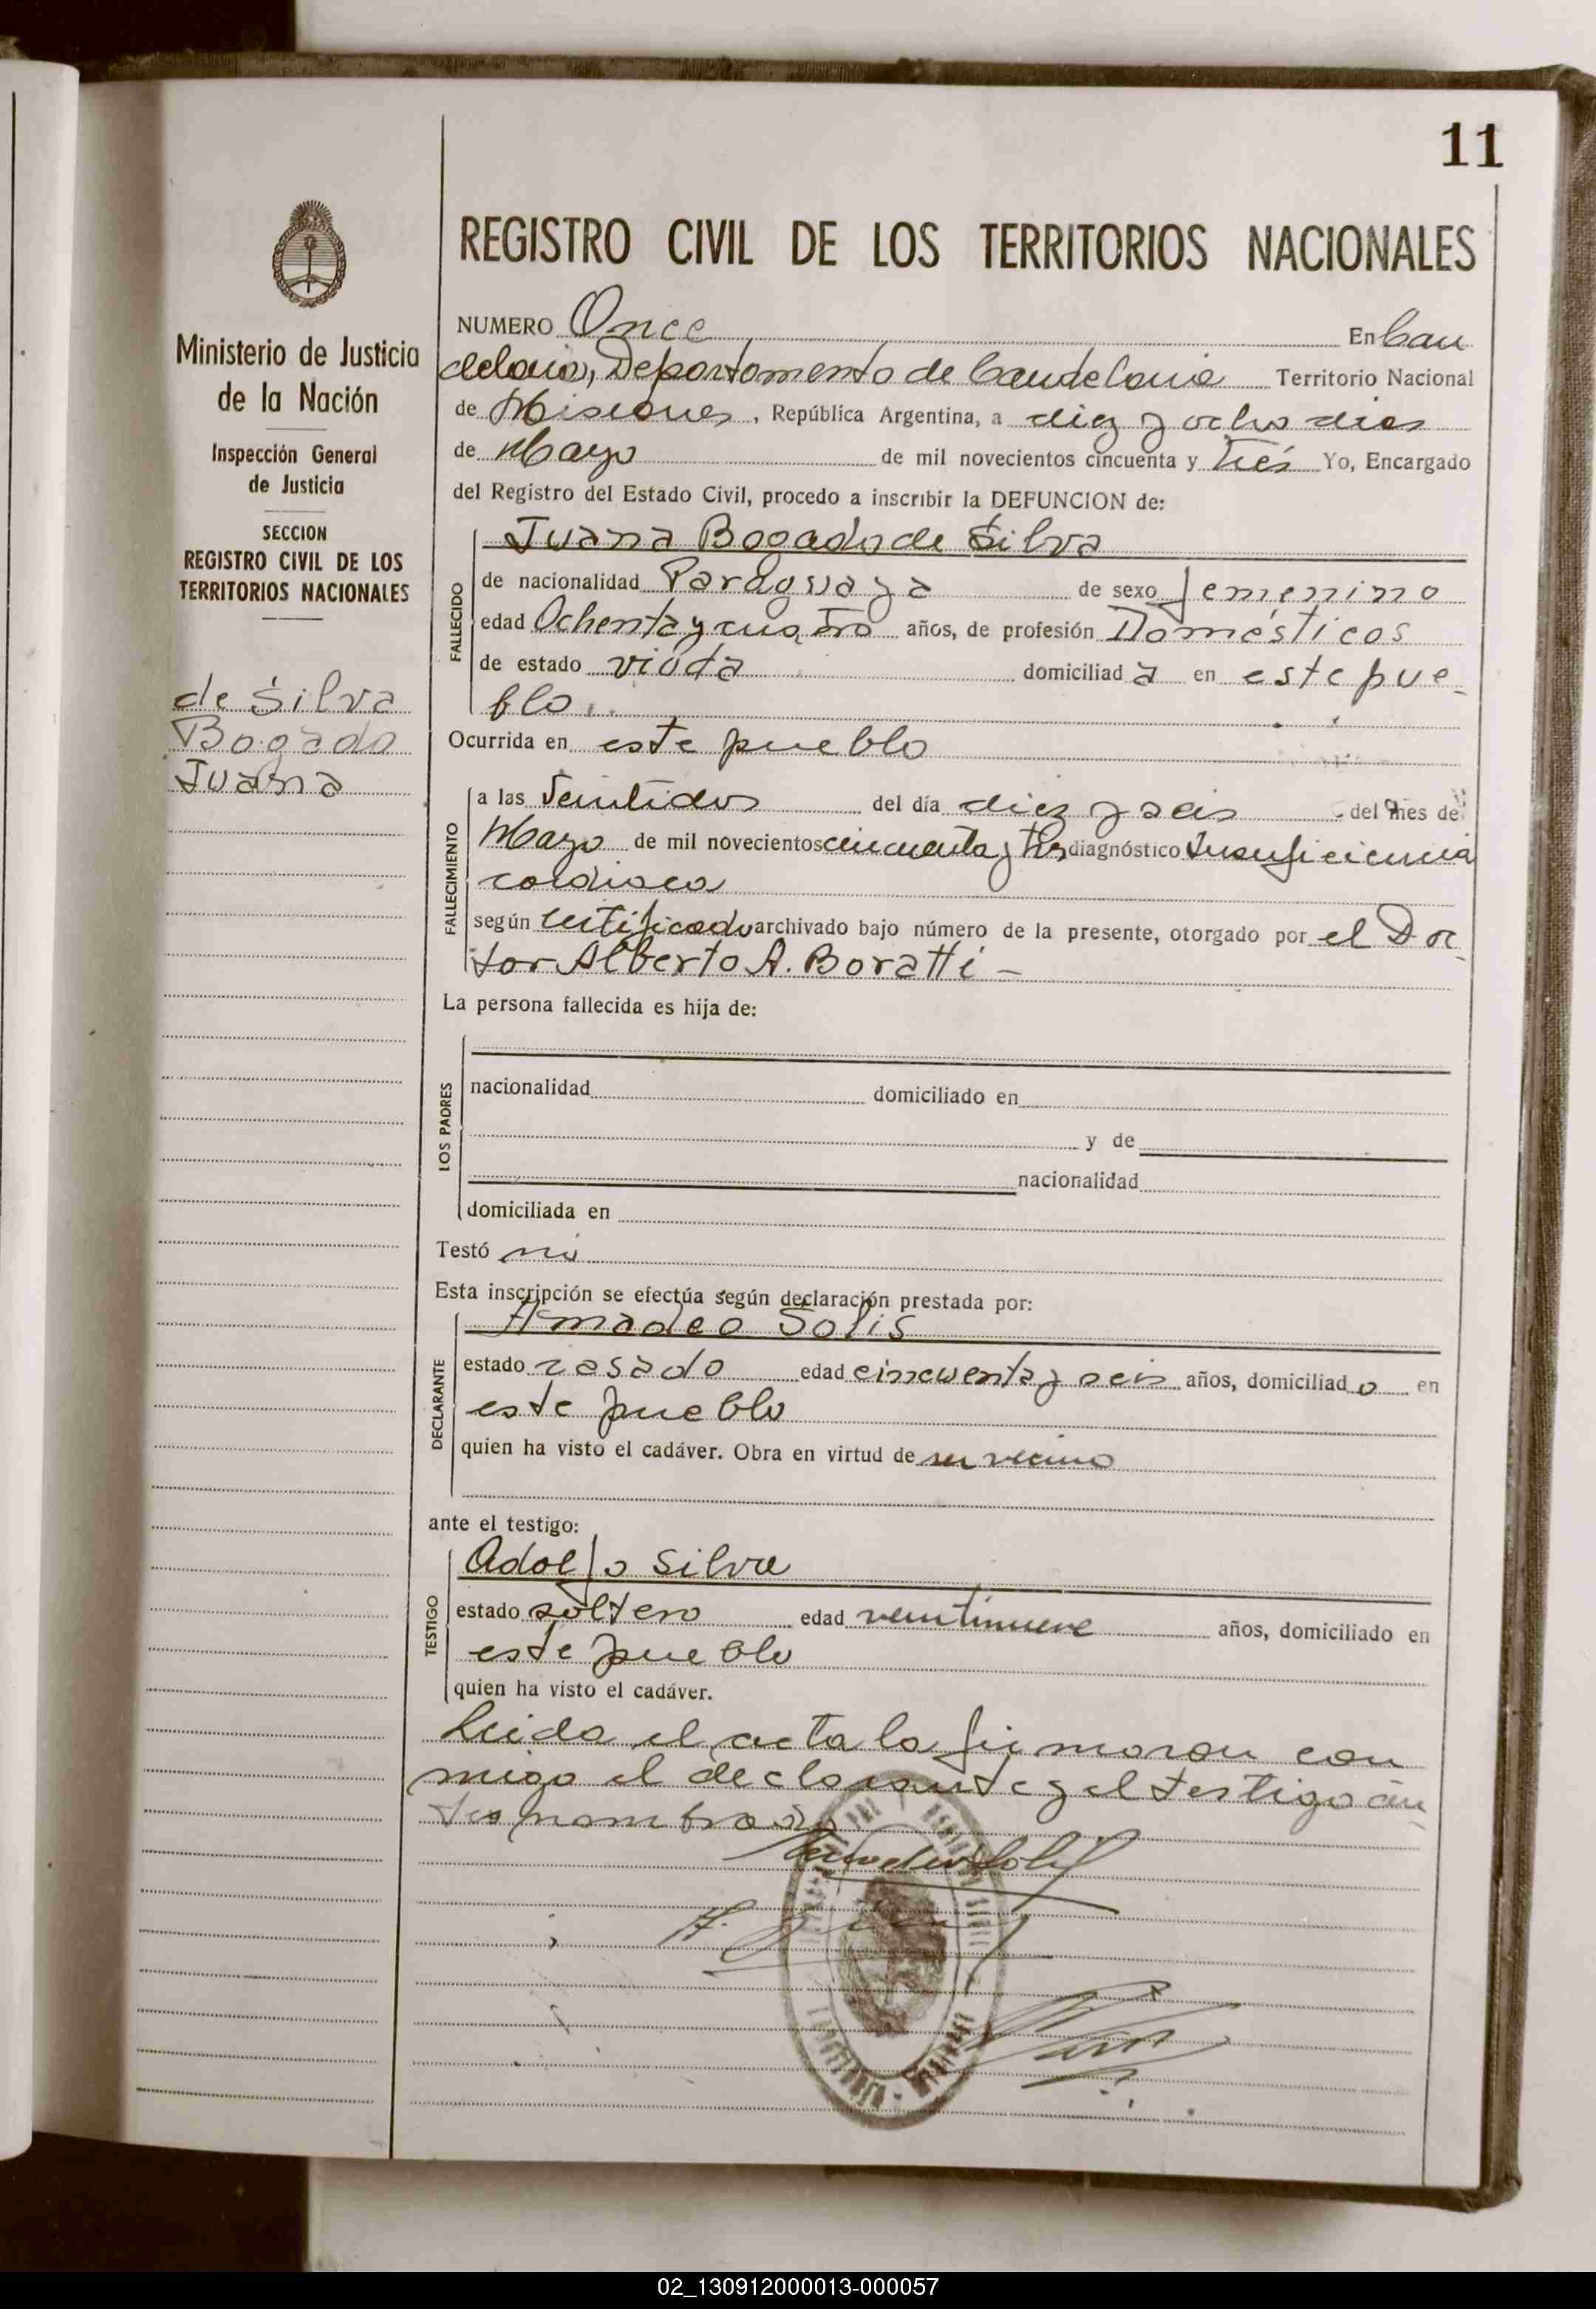 11
REGISTRO CIVIL DE LOS TERRITORIOS NACIONALES
Ministerio de Justicia
de la Nación
Inspección General
de Justicia
SECCION
REGISTRO CIVIL DE LOS
TERRITORIOS NACIONALES
de Silva
Bogado
Juana
NUMERO Once En Can
delaria, Departamento de Candelaria Territorio Nacional
de Misiones, República Argentina, a diez y ocho dias
de Mayo de mil novecientos cincuenta y Tres Yo, Encargado
del Registro del Estado Civil, procedo a inscribir la DEFUNCION de:
FALLECIDO
Juana Bogado de Silva
de nacionalidad Paraguaya de sexo femenino
edad Ochenta y cuatro años, de profesión Domésticos
de estado viuda domiciliad a en este pue-
blo..
Ocurrida en este pueblo
FALLECIMIENTO
a las Veintidos del día diez y seis del mes de
Mayo de mil novecientos cincuenta y tres diagnóstico Insuficiencia
cardiaca
según certificado archivado bajo número de la presente, otorgado por el Doc-
tor Alberto A. Boratti -
La persona fallecida es hija de:
LOS PADRES
nacionalidad domiciliado en
y de
nacionalidad
domiciliada en
Testó no
Esta inscripción se efectúa según declaración prestada por:
DECLARANTE
Amadeo Solis
estado casado edad cincuenta y seis años, domiciliad o en
este pueblo
quien ha visto el cadáver. Obra en virtud de ser vecino
ante el testigo:
TESTIGO
Adolfo Silva
estado soltero edad veintinueve años, domiciliado en
este pueblo
quien ha visto el cadáver.
Leida el acta la firmaron con
migo el declarante y el testigo an
tes nombrado
02_130912000013-000057